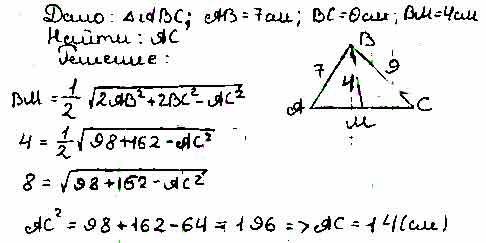 Дано: △ABC; AB=7см; BC=9см; BM=4см
Найти: AC
Решение:
BM = 1/2 √(2AB²+2BC²-AC²)
4 = 1/2 √(98+162-AC²)
8 = √(98+162-AC²)
AC² = 98+162-64 = 196 => AC = 14(см)
B
7
4
9
A
M
C